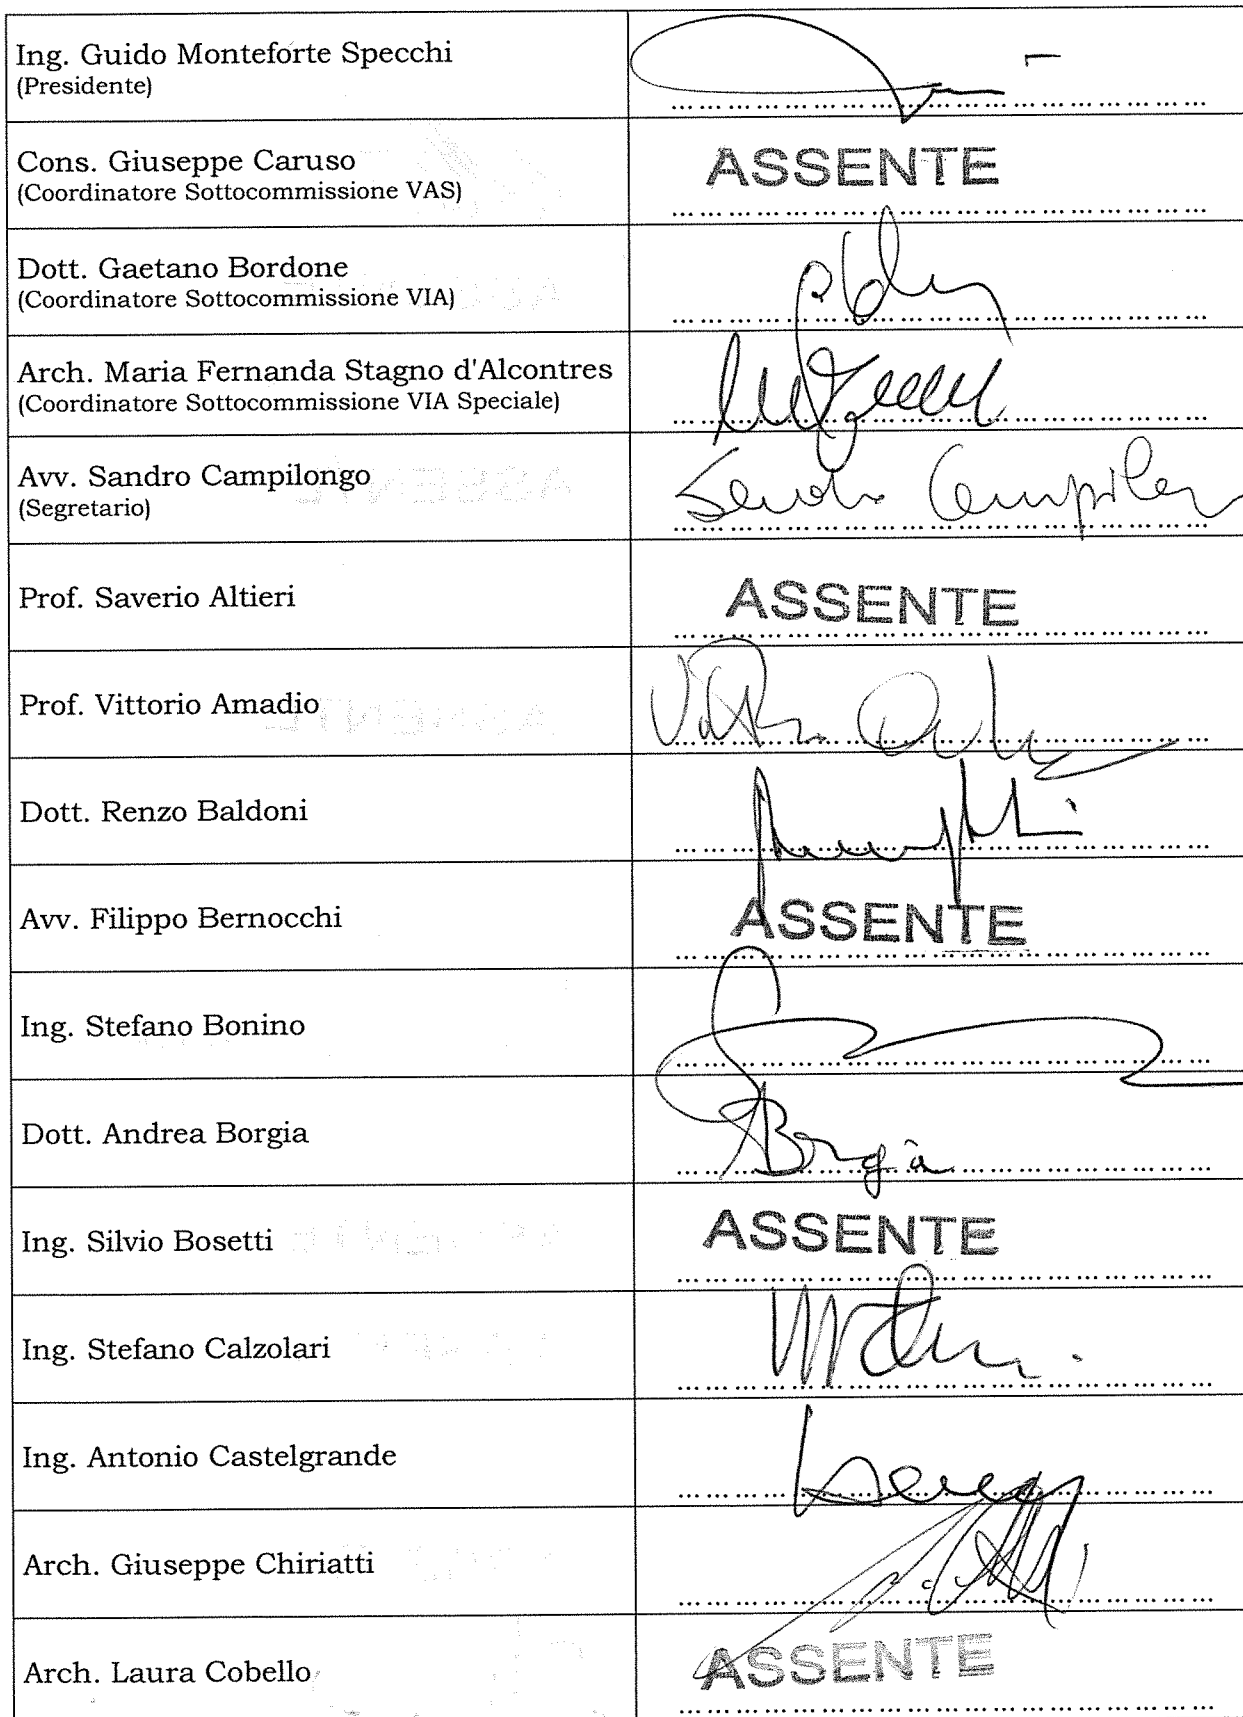 Ing. Guido Monteforte Specchi
(Presidente)
Cons. Giuseppe Caruso
(Coordinatore Sottocommissione VAS)
ASSENTE
Dott. Gaetano Bordone
(Coordinatore Sottocommissione VIA)
Arch. Maria Fernanda Stagno d'Alcontres
(Coordinatore Sottocommissione VIA Speciale)
Avv. Sandro Campilongo
(Segretario)
Prof. Saverio Altieri
ASSENTE
Prof. Vittorio Amadio
Dott. Renzo Baldoni
Avv. Filippo Bernocchi
ASSENTE
Ing. Stefano Bonino
Dott. Andrea Borgia
Borgia
Ing. Silvio Bosetti
ASSENTE
Ing. Stefano Calzolari
Ing. Antonio Castelgrande
Arch. Giuseppe Chiriatti
Arch. Laura Cobello
ASSENTE